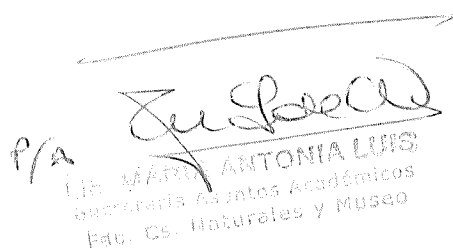 P/A
Lic. MARIA ANTONIA LUIS
Secretaria Asuntos Académicos
Fac. Cs. Naturales y Museo